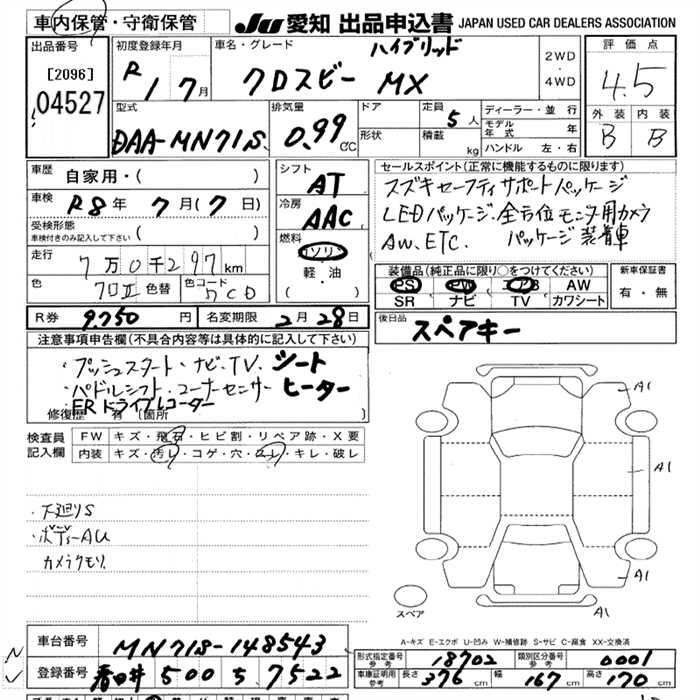 車内保管・守衛保管
JU 愛知 出品申込書 JAPAN USED CAR DEALERS ASSOCIATION
出品番号
[2096]
04527
初度登録年月
R 1 7月
車名・グレード
ハイブリッド
クロスビー MX
2WD
・
4WD
評価点
4.5
外装 内装
B B
型式
DAA-MN71S
排気量
0.99 cc
ドア
形状
定員 5人
積載 kg
ディーラー・並行
モデル年式 年
ハンドル 左・右
車歴 自家用・( )
車検 R8年 7月(7日)
受検形態 ( )
車検付きのみ記入して下さい
走行 7万0千297km
色 クロII 色替 色コード ZCD
シフト AT
冷房 AAC
燃料
ガソリン
軽・油
( )
セールスポイント(正常に機能するものに限ります)
スズキセーフティサポートパッケージ
LEDパッケージ・全方位モニタ用カメラ
AW、ETC. パッケージ装着車
装備品(純正品に限り○をつけてください)
PS PW エアB AW
SR ナビ TV カワシート
新車保証書
有・無
R券 9,750円 名変期限 2月28日
後日品
スペアキー
注意事項申告欄(不具合内容等は具体的に記入して下さい)
・プッシュスタート・ナビ・TV、シート
・パドルシフト・コーナーセンサー ヒーター
・FRドライブレコーダー
修復歴 有(箇所 )
検査員
記入欄
FW キズ・飛石・ヒビ割・リペア跡・X要
内装 キズ・汚レ・コゲ・穴・スレ・キレ・破レ
・下廻りS
・ボディーAU
カメラクモリ
A1
A1
A1
A1
スペア
A-キズ E-エクボ U-凹み W-補修跡 S-サビ C-腐食 XX-交換済
車台番号 MN71S-148543
登録番号 春日井 500 ち 7522
形式指定番号 参考 18702 類別区分番号 参考 0001
車庫証明用 参考 長さ 376cm 幅 167cm 高さ 170cm